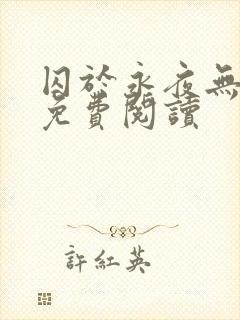 囚於永夜無
免費閱讀
許紅英